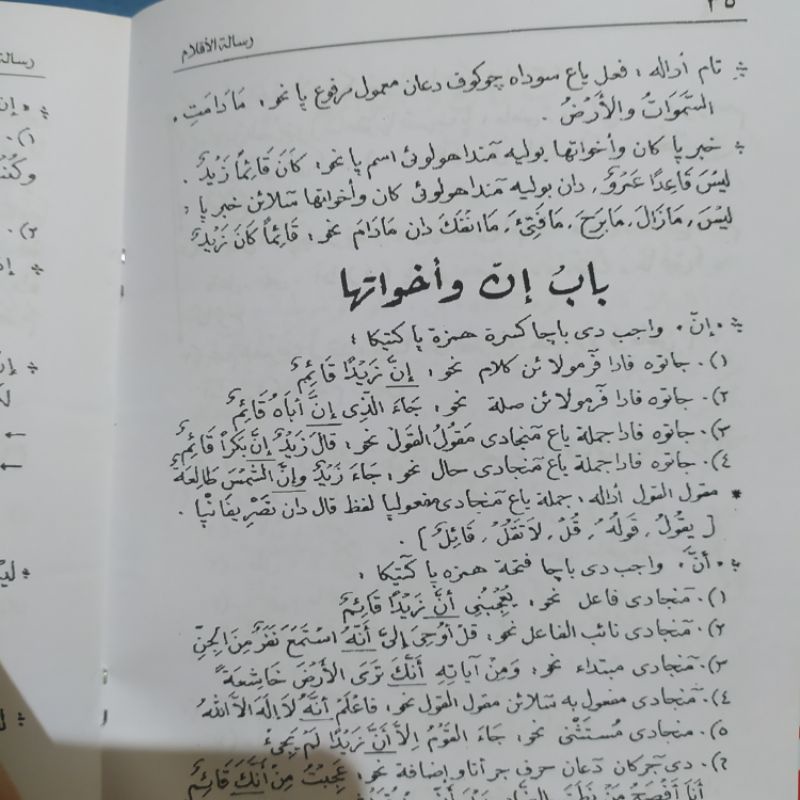 ٣٥
رسالة الأقلام
تام أداله ، فعل ياڠ سوداه چوكوف دڠان معمول مرفوع پا نحو : مَادَامَتِ
السَّمَوَاتُ وَالأَرْضُ .
خبر پا كان وأخواتها بوليه منداهولوئ اسم پا نحو : كَانَ قَائِمًا زَيْدٌ .
لَيْسَ قَاعِدًا عَمْرٌو ، دان بوليه منداهولوئ كان وأخواتها سلائن خبر پا :
لَيْسَ ، مَازَالَ ، مَابَرِحَ ، مَافَتِئَ ، مَاانْفَكَ دان مَادَامَ نحو : قَائِمًا كَانَ زَيْدٌ
بابُ إن وأخواتها
• إنّ • واجب دى باچا كسرة همزة پا كتيكا :
١). جاتوه فادا فرمولائن كلام نحو : إِنَّ زَيْدًا قَائِمٌ
٢). جاتوه فادا فرمولائن صلة نحو : جَاءَ الَّذِى إِنَّ أَبَاهُ قَائِمٌ
٣). جاتوه فادا جملة ياڠ منجادى مَقُولُ القَوْلِ نحو : قَالَ زَيْدٌ إِنَّ بَكْرًا قَائِمٌ
٤). جاتوه فادا جملة ياڠ منجادى حال نحو : جَاءَ زَيْدٌ وَإِنَّ الشَّمْسَ طَالِعَةٌ
* مقول القول أداله : جملة ياڠ منجادى مفعولپا لفظ قال دان تَصْرِيفَانْپا .
[ يَقُولُ ، قَوْلُهُ ، قُلْ ، لاَتَقُلْ ، قَائِلٌ ] .
• أَنَّ • واجب دى باچا فتحة همزه پا كتيكا :
١). منجادى فاعل نحو : يُعْجِبُنِى أَنَّ زَيْدًا قَائِمٌ
٢). منجادى نائب الفاعل نحو : قُلْ أُوحِيَ إِلَيَّ أَنَّهُ اسْتَمَعَ نَفَرٌ مِنَ الجِنِّ
٣). منجادى مبتداء نحو : وَمِنْ آيَاتِهِ أَنَّكَ تَرَى الأَرْضَ خَاشِعَةً
٤). منجادى مفعول به سلائن مقول القول نحو : فَاعْلَمْ أَنَّهُ لاَإِلَهَ الاَّ اللهُ
٥). منجادى مُسْتَثْنَى نحو : جَاءَ القَوْمُ الاَّ أَنَّ زَيْدًا لَمْ يَجِئْ
٦). دى جركان دڠان حرف جر أتاو إضافة نحو : عَجِبْتُ مِنْ أَنَّكَ قَائِمٌ